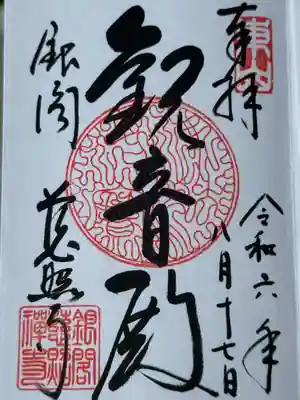 奉拝
令和六年
八月十七日
観音殿
銀閣
慈照寺
銀閣
慈照
禅寺